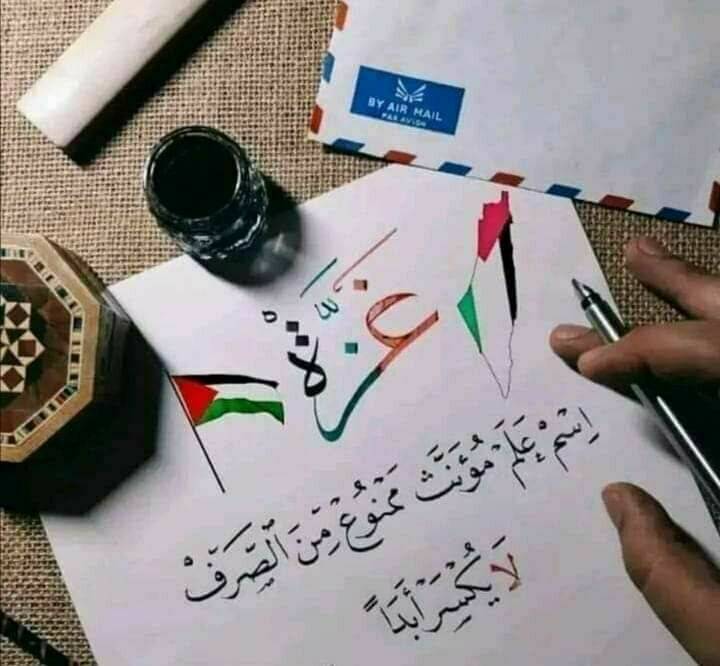 BY AIR MAIL
PAR AVION
غَزَّةْ
اِسْمُ إِعَلَمْ مُؤَنَّثْ مَمْنُوعْ مِنَ الصَّرَفْ
لَا يُكْسِرَ أَبَدَاً